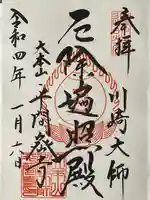 奉拝
川崎大師
厄除遍照殿
大本山平間寺
令和四年一月六日